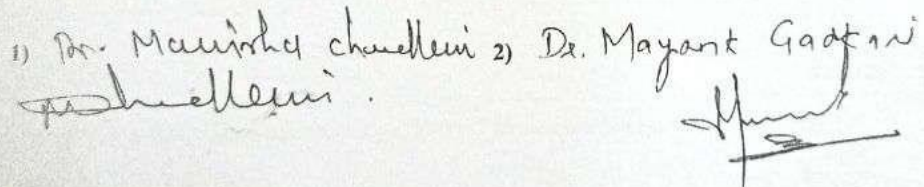 1) Dr. Manisha Chandleni 2) Dr. Mayank Gadkari